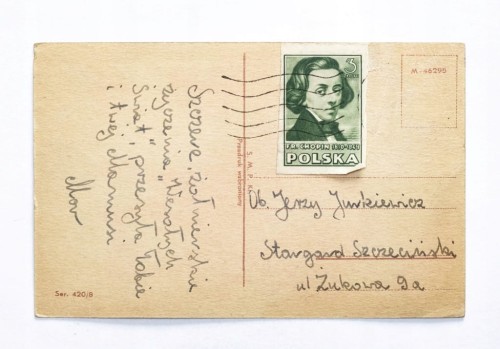 Szczere, żołnierskie
życzenia "Wesołych
Świąt", przesyła Tobie
i twej Mamusi
Ser. 420/B
S. M. P. Kr.
Przedruk wzbroniony
3
FR. CHOPIN 1810-1849
POLSKA
M-46295
Ob. Jerzy Jurkiewicz
Stargard Szczeciński
ul Żukowa 9a